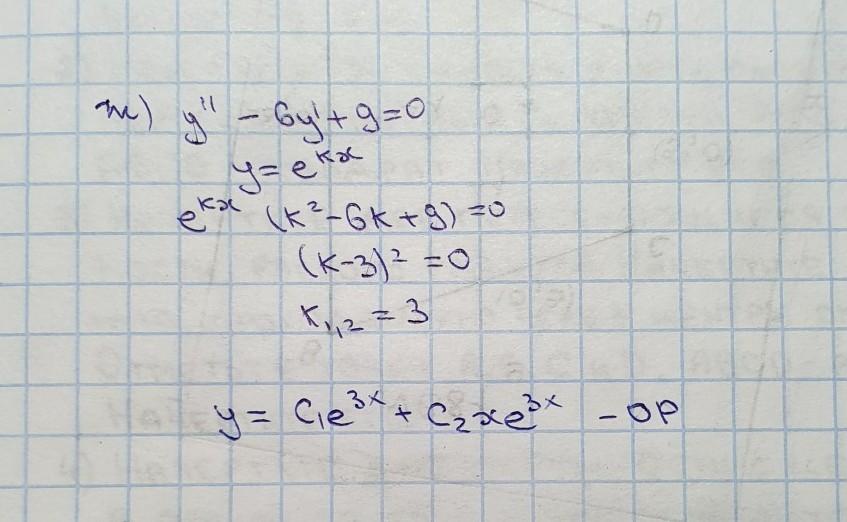 ж) y'' - 6y' + 9 = 0
y = e^{kx}
e^{kx} (k² - 6k + 9) = 0
(k-3)² = 0
k_{1,2} = 3
y = C₁e^{3x} + C₂xe^{3x} - ОР